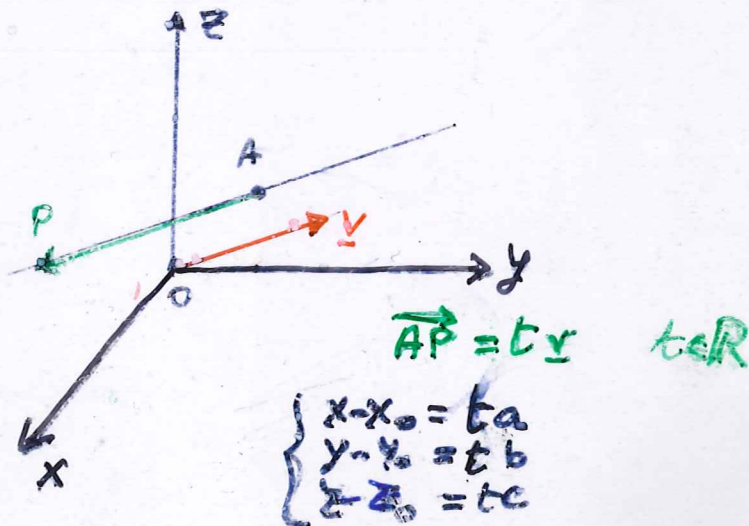 z
A
P
v
O
y
x
AP = t v t ∈ ℝ
x - x₀ = t a
y - y₀ = t b
z - z₀ = t c